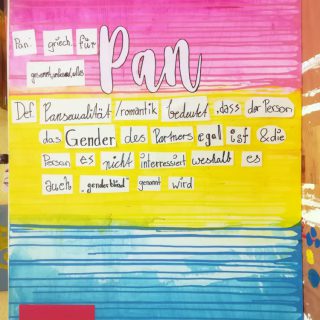 Pan griech. für
gesamt, umfassend, alles
Pan
Def. Pansexualität/romantik bedeutet, dass der Person
das Gender des Partners egal ist & die
Person es nicht interessiert weshalb es
auch "genderblind" genannt wird